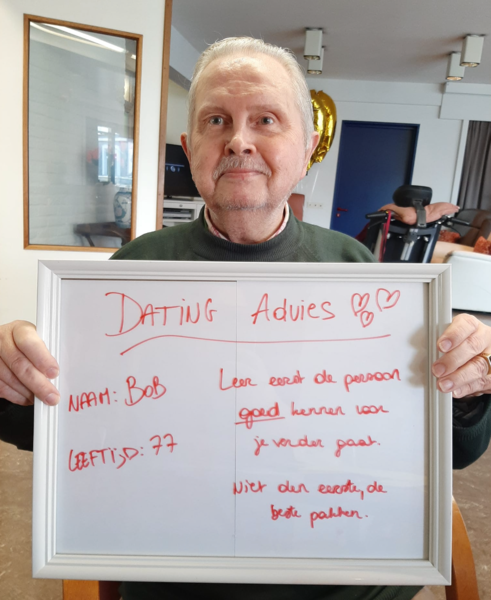 DATING Advies
NAAM: BOB
LEEFTIJD: 77
Leer eerst de persoon
goed kennen voor
je verder gaat.
Niet den eerste, de
beste pakken.